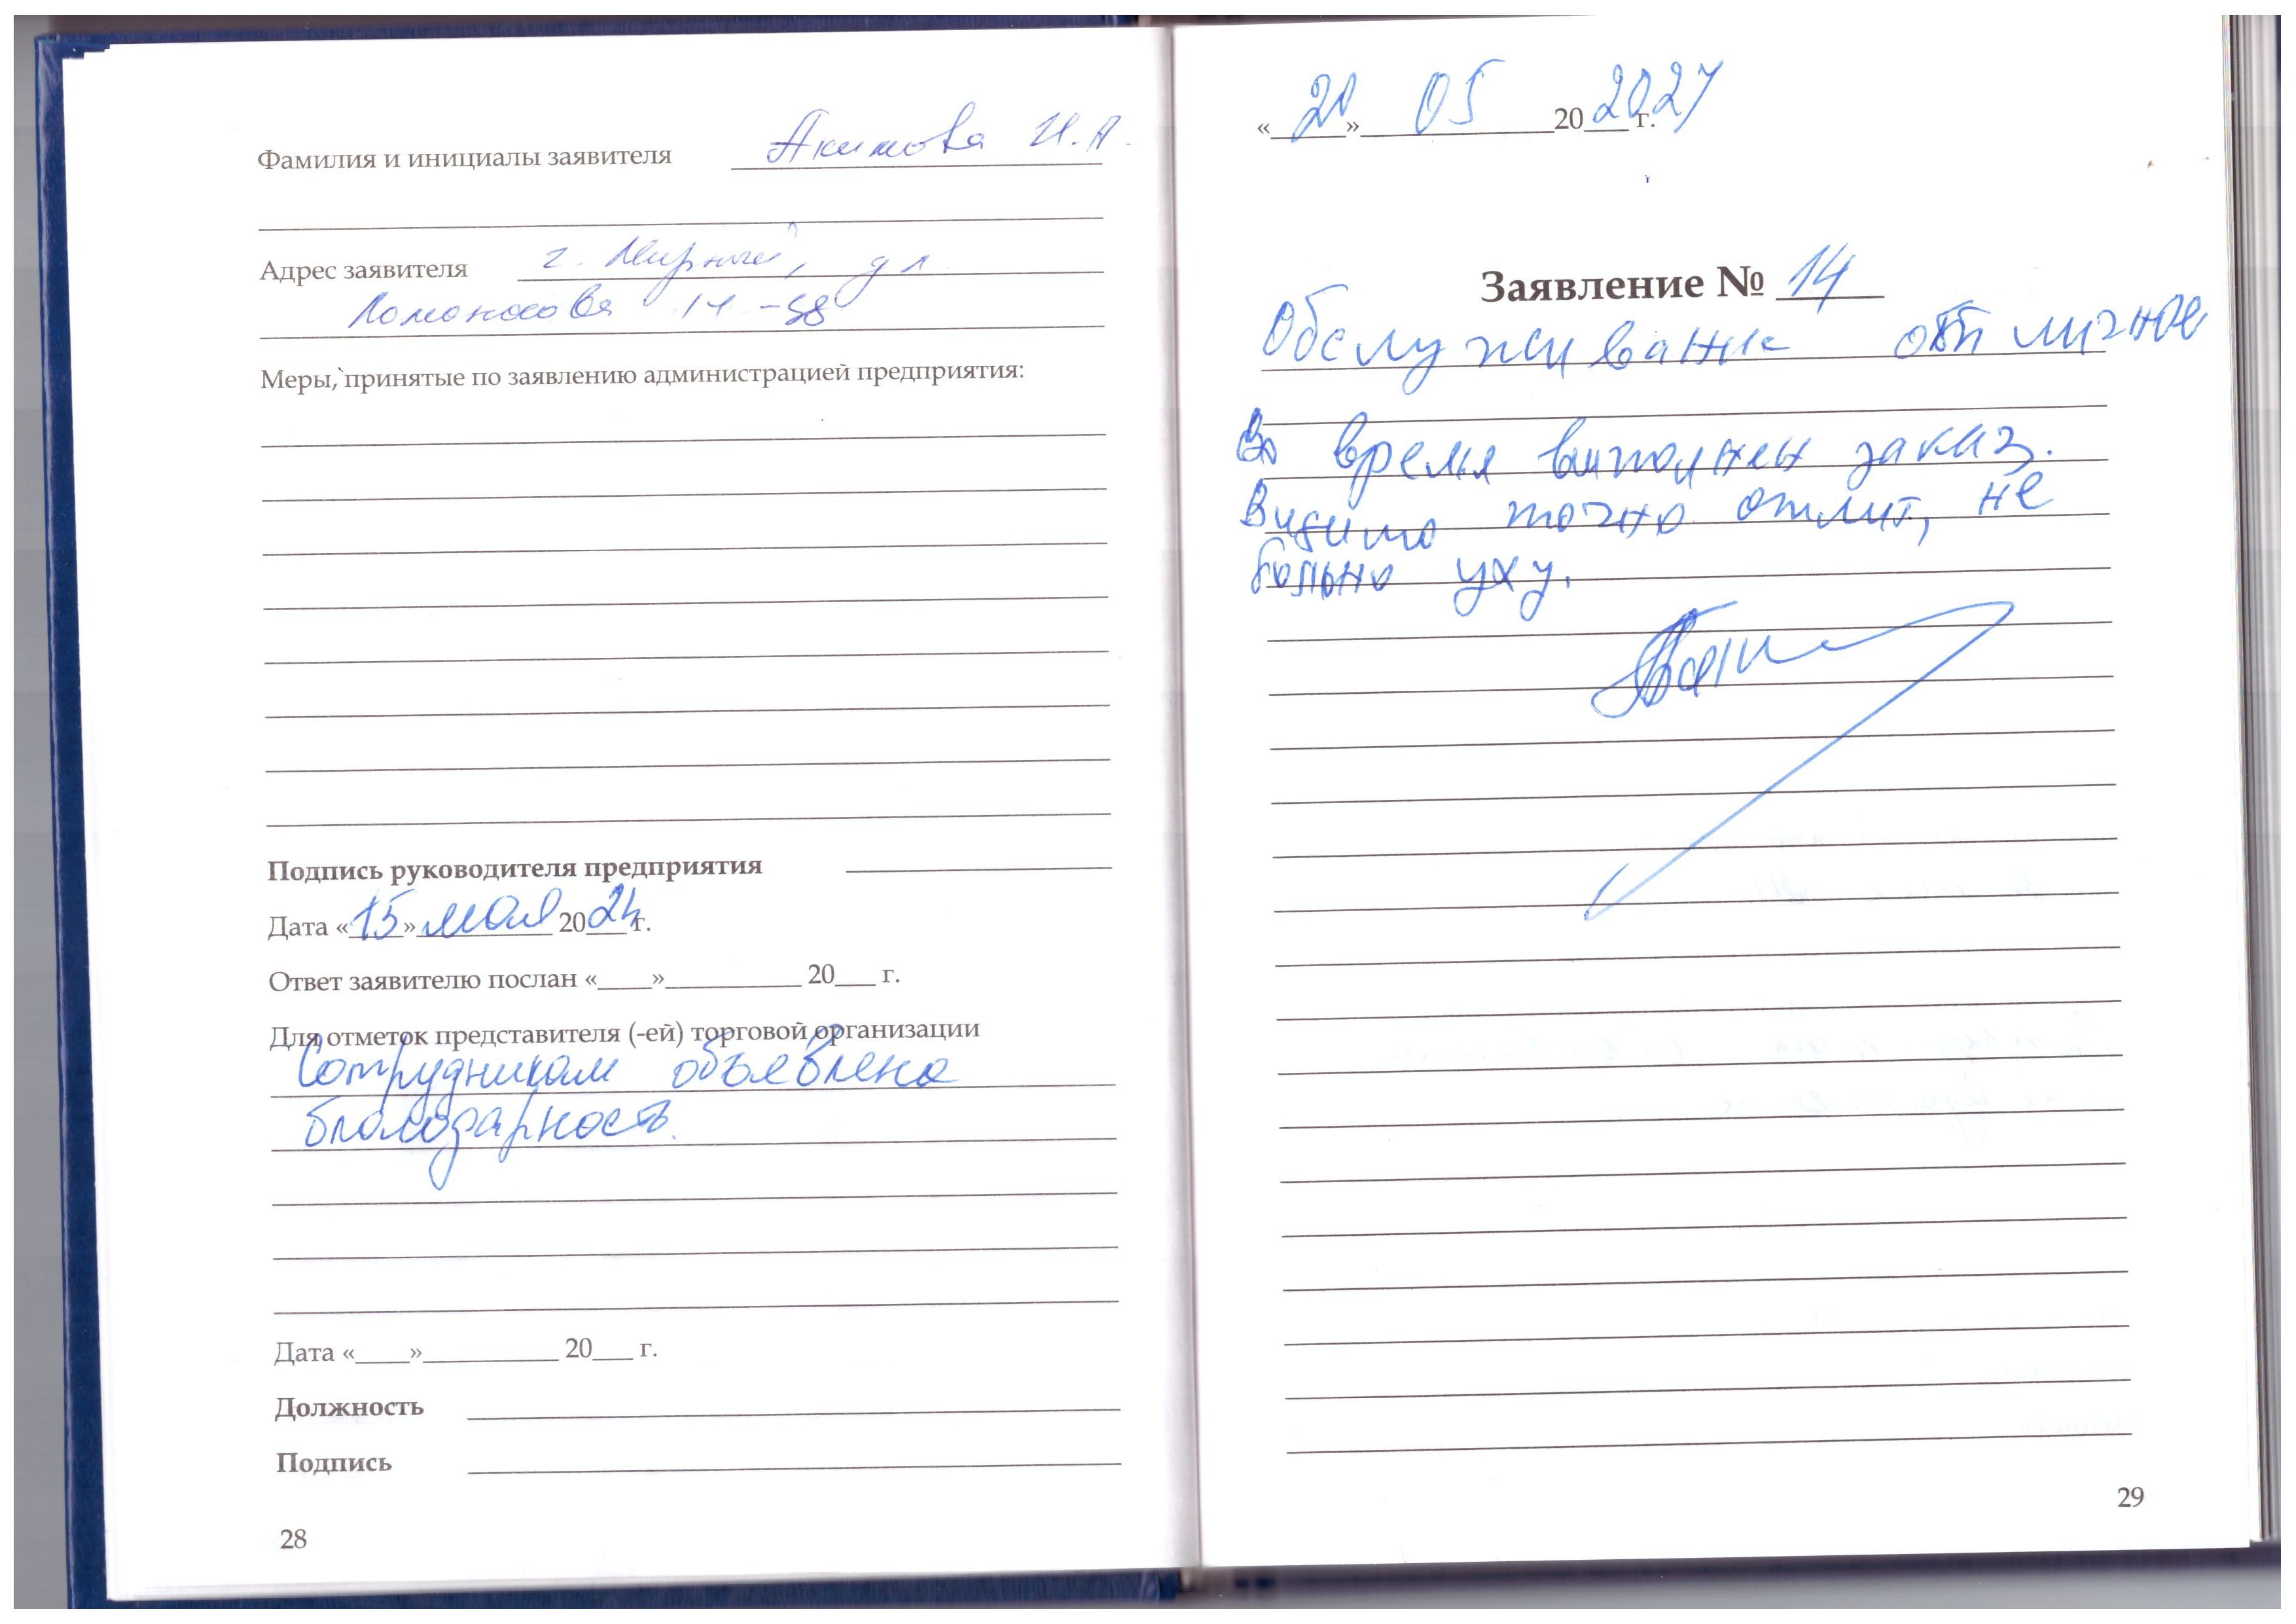 Фамилия и инициалы заявителя Акимова И.А.
Адрес заявителя г. Мирный, ул
Ломоносова 14-58
Меры, принятые по заявлению администрацией предприятия:
Подпись руководителя предприятия
Дата «15» мая 2024 г.
Ответ заявителю послан «____»__________ 20___ г.
Для отметок представителя (-ей) торговой организации
Сотрудникам объявлена
благодарность.
Дата «____»__________ 20___ г.
Должность
Подпись
28
«20» 05 202024 г.
Заявление № 14
Обслуживание отличное
Во время выполнен заказ.
Видимо точно отлит, не
больно уху.
29